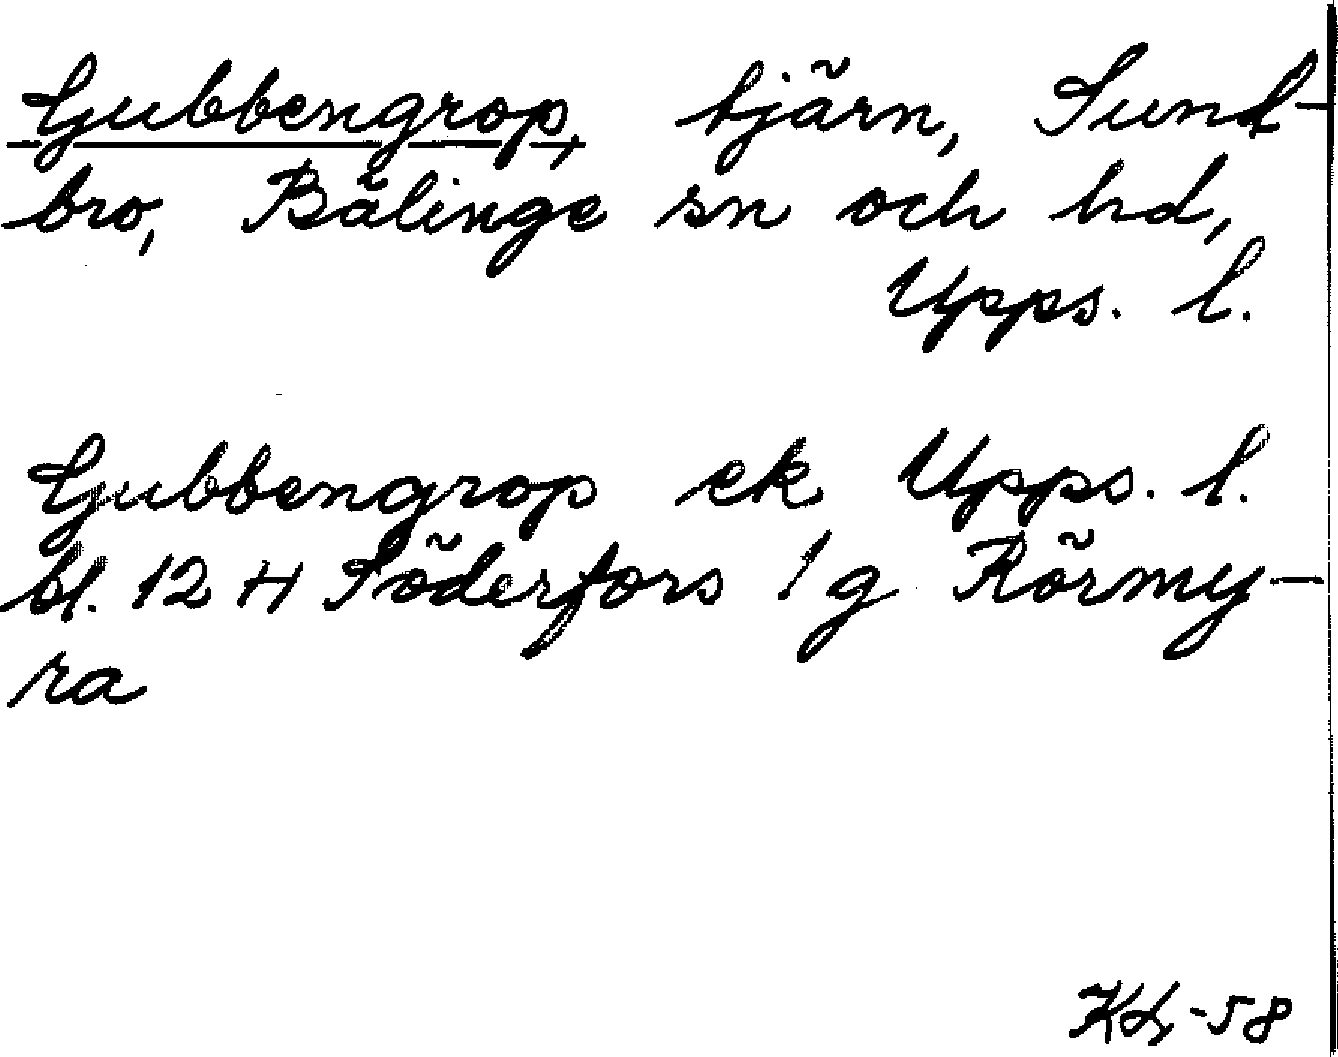 Gubbengrop, tjärn, Sund-
bro, Bälinge sn och hd,
Upps. l.
Gubbengrop ek Upps. l.
bl. 12 H Söderfors 1g Rörmy-
ra
KL-58